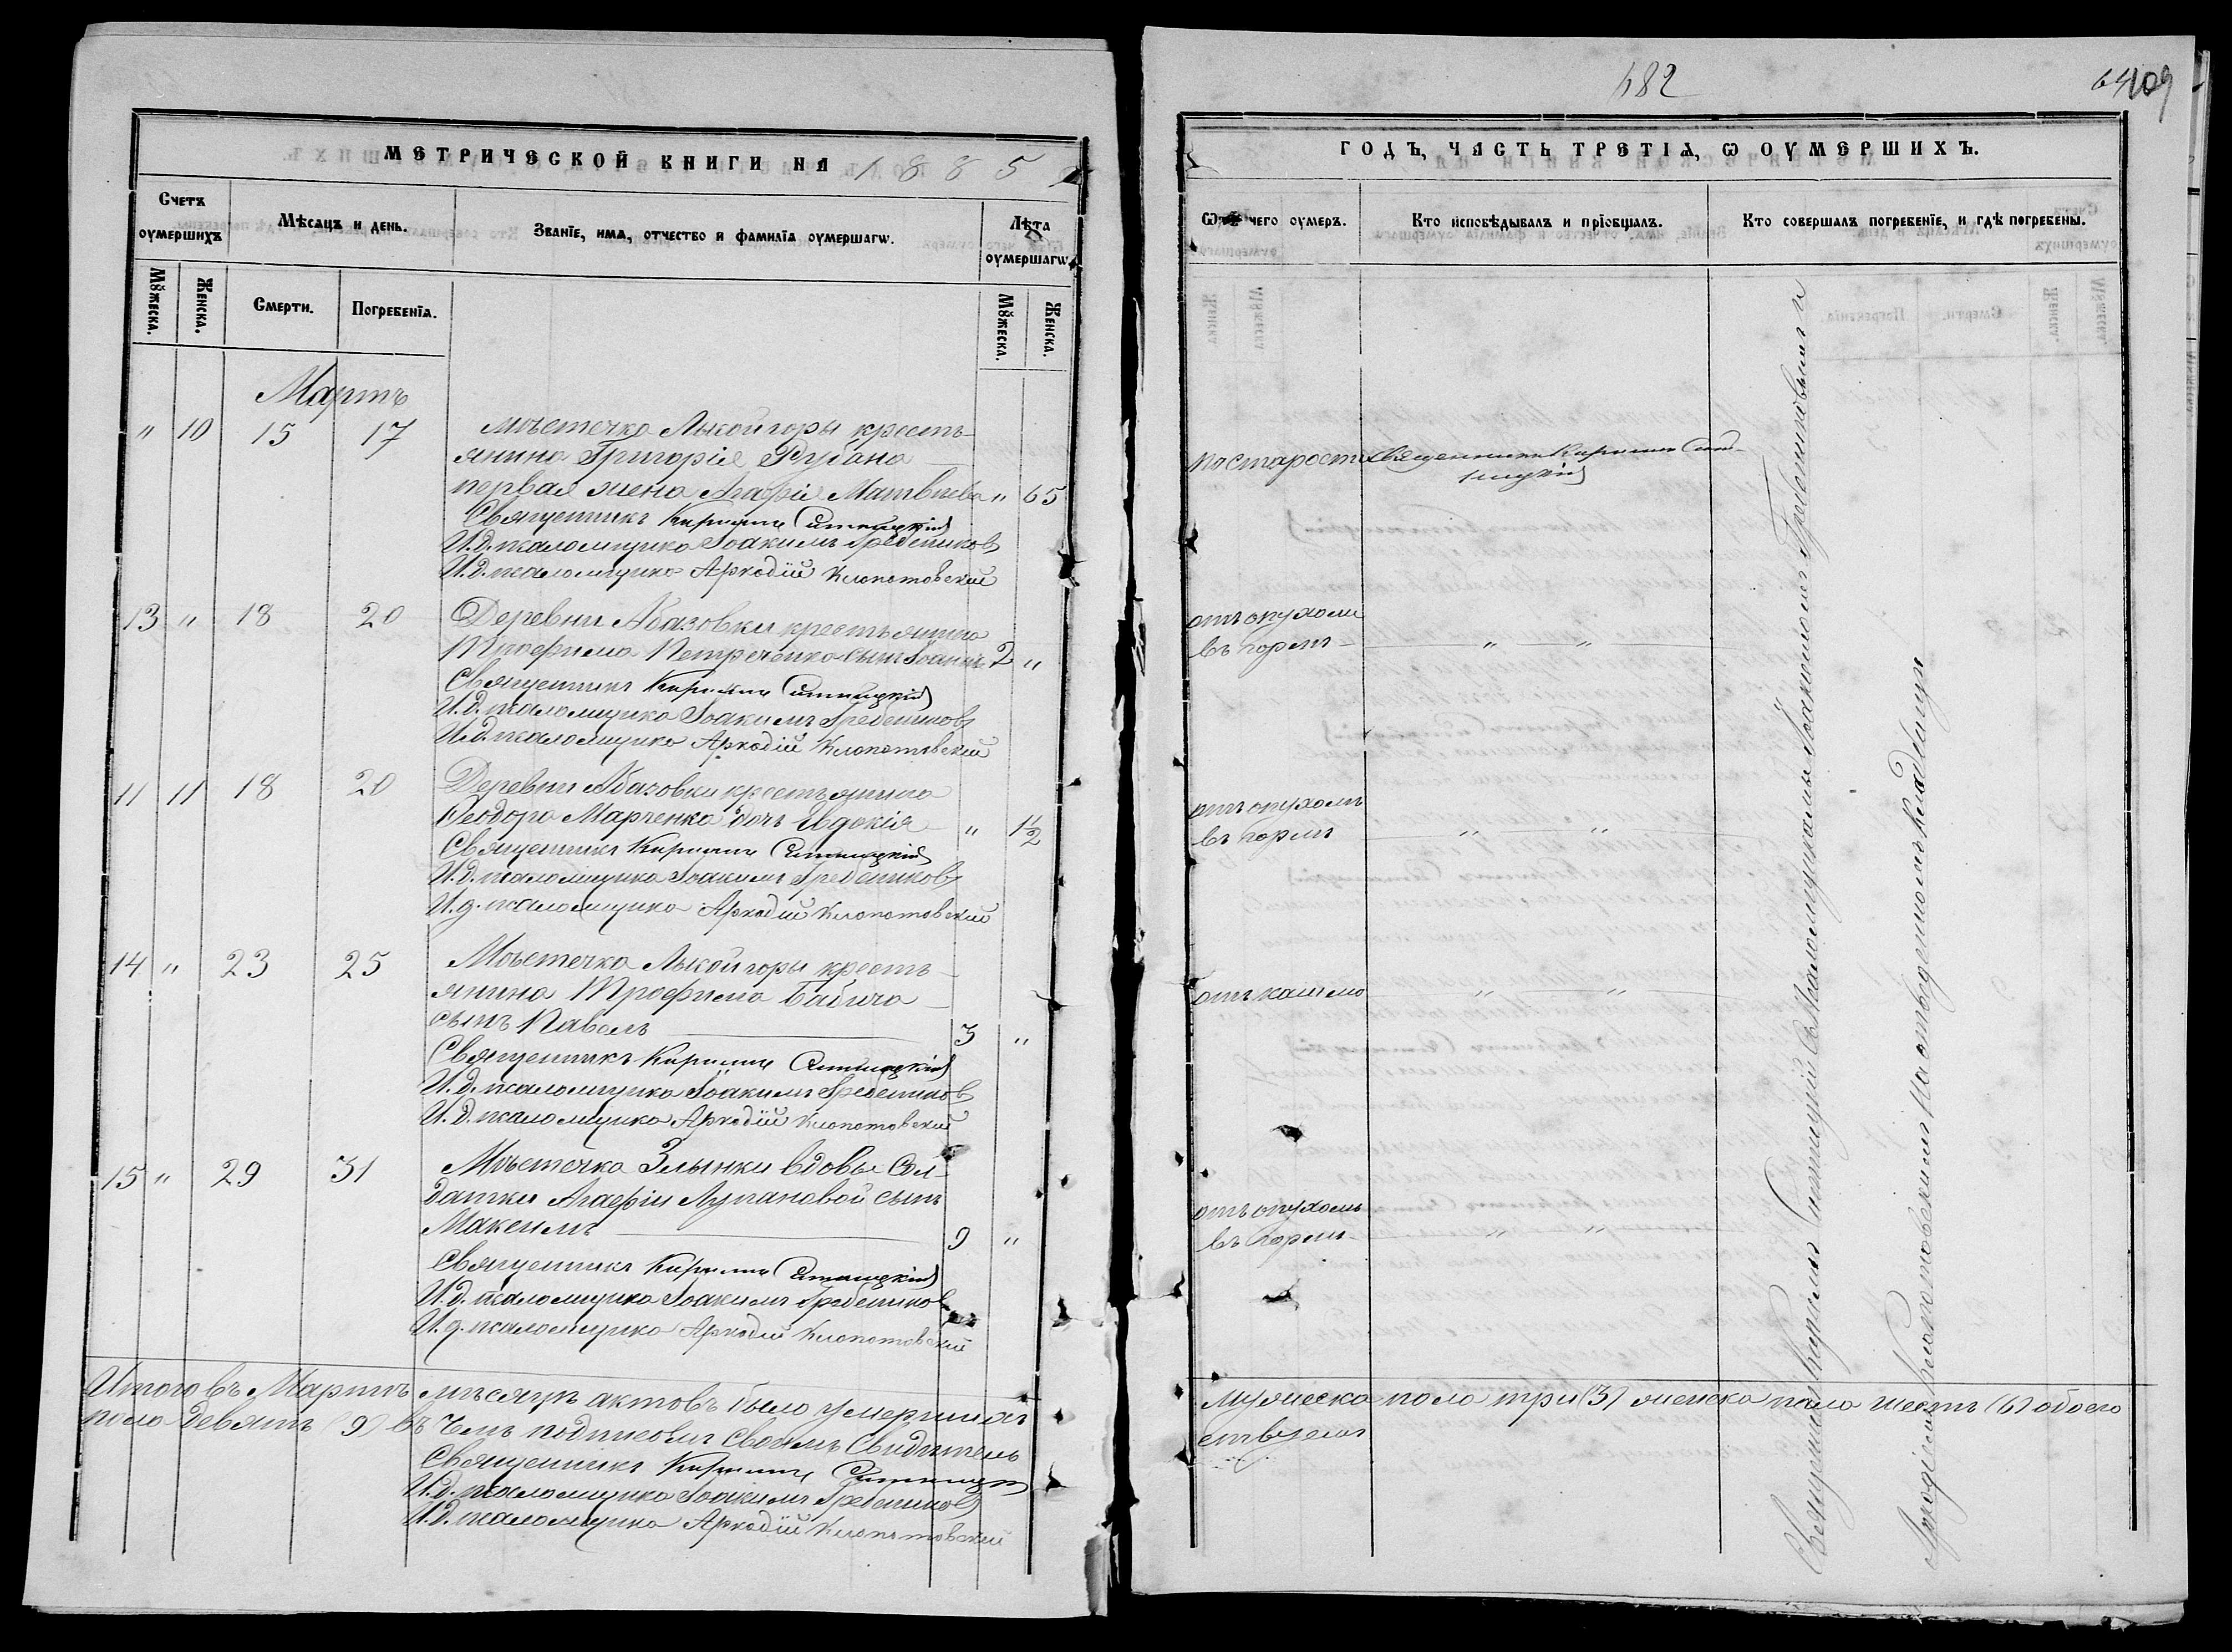 МЕТРИЧЕСКОЙ КНИГИ НА 1885
Счетъ оумершихъ
Мѣсяцъ и день.
Званїе, имя, отчество и фамилїя оумершагѡ.
Лѣта оумершагѡ
Мꙋжеска.
Женска.
Смерти.
Погребенїя.
Мꙋжеска.
Женска.
Мартъ
" 10 15 17 Мѣстечка Лысой горы кресть-
янина Григорія Рубана
первая жена Агафія Матвѣева " 65
Священникъ Кириллъ Ситницкій
И.д. псаломщика Іоакимъ Гребенниковъ
И.д. псаломщика Аркадій Клопотовскій
13 " 18 20 Деревни Абазовки крестьянина
Трофима Петреченка сынъ Іоаннъ 2 "
Священникъ Кириллъ Ситницкій
И.д. псаломщика Іоакимъ Гребенниковъ
И.д. псаломщика Аркадій Клопотовскій
11 11 18 20 Деревни Абазовки крестьянина
Ѳеодора Марченка дочь Евдокія " 1½
Священникъ Кириллъ Ситницкій
И.д. псаломщика Іоакимъ Гребенниковъ
И.д. псаломщика Аркадій Клопотовскій
14 " 23 25 Мѣстечка Лысой горы кресть-
янина Трофима Бабича
сынъ Павелъ 3 "
Священникъ Кириллъ Ситницкій
И.д. псаломщика Іоакимъ Гребенниковъ
И.д. псаломщика Аркадій Клопотовскій
15 " 29 31 Мѣстечка Злынки вдовы Сол-
датки Агафіи Лупановой сынъ
Максимъ 9 "
Священникъ Кириллъ Ситницкій
И.д. псаломщика Іоакимъ Гребенниковъ
И.д. псаломщика Аркадій Клопотовскій
Итого въ Мартѣ мѣсяцѣ актовъ было умершихъ
пола девять (9) въ чемъ подписомъ своимъ свидѣтель
Священникъ Кириллъ Ситницкій
И.д. псаломщика Іоакимъ Гребенниковъ
И.д. псаломщика Аркадій Клопотовскій
482
109
ГОДЪ, ЧАСТЬ ТРЕТІЯ, Ѡ ОУМЕРШИХЪ.
Ѿ чего оумеръ.
Кто исповѣдывалъ и прїобщалъ.
Кто совершалъ погребенїе, и гдѣ погребены.
по старости Священникъ Кириллъ Сит-
ницкій
отъ опухоли
въ горлѣ " "
отъ опухоли
въ горлѣ " "
отъ кашлю " "
отъ опухоли
въ горлѣ " "
Священникъ Кириллъ Ситницкій съ Псаломщиками Іоакимомъ Гребенниковымъ и
Аркадіемъ Клопотовскимъ на отведенномъ кладбищѣ
мужеска пола три (3) женска пола шесть (6) обоего
ствуемъ